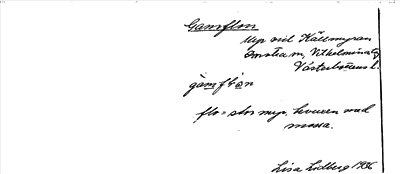 Gamflon
Myr vid Källmyran
m, Vilhelmina
Västerbottens l.
gàmflòn
flo = stor myr, bevuxen med
mossa.
Lisa Lidberg 1936